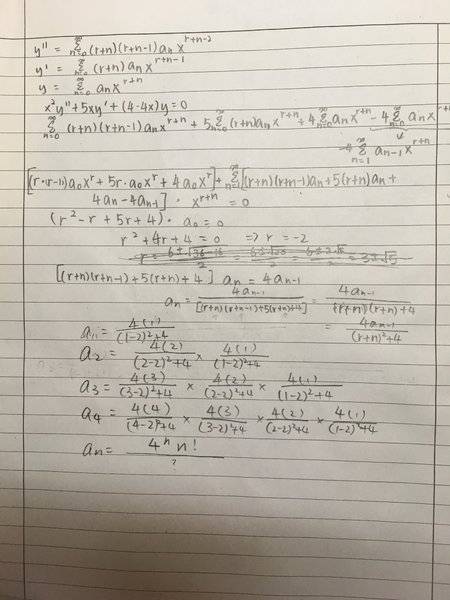 y'' = ∑_{n=0}^{∞} (r+n)(r+n-1) a_n x^{r+n-2}
y' = ∑_{n=0}^{∞} (r+n) a_n x^{r+n-1}
y = ∑_{n=0}^{∞} a_n x^{r+n}
x²y'' + 5xy' + (4-4x)y = 0
∑_{n=0}^{∞} (r+n)(r+n-1) a_n x^{r+n} + 5∑_{n=0}^{∞} (r+n) a_n x^{r+n} + 4∑_{n=0}^{∞} a_n x^{r+n} - 4∑_{n=0}^{∞} a_n x^{r+n+1}
-4∑_{n=1}^{∞} a_{n-1} x^{r+n}
[r·(r-1) a_0 x^r + 5r·a_0 x^r + 4a_0 x^r] + ∑_{n=1}^{∞} [(r+n)(r+n-1) a_n + 5(r+n) a_n +
4a_n - 4a_{n-1}] · x^{r+n} = 0
(r² - r + 5r + 4) · a_0 = 0
r² + 4r + 4 = 0 ⇒ r = -2
r = (6±√(36-16))/2 = (6±√20)/2 = (6±2√5)/2 = 3±√5
[(r+n)(r+n-1) + 5(r+n) + 4] a_n = 4a_{n-1}
a_n = 4a_{n-1}/[(r+n)(r+n-1)+5(r+n)+4] = 4a_{n-1}/((r+n)(r+n)+4)
= 4a_{n-1}/((r+n)²+4)
a_1 = 4(1)/((1-2)²+4)
a_2 = 4(2)/((2-2)²+4) × 4(1)/((1-2)²+4)
a_3 = 4(3)/((3-2)²+4) × 4(2)/((2-2)²+4) × 4(1)/((1-2)²+4)
a_4 = 4(4)/((4-2)²+4) × 4(3)/((3-2)²+4) × 4(2)/((2-2)²+4) × 4(1)/((1-2)²+4)
a_n = 4^n n!/?